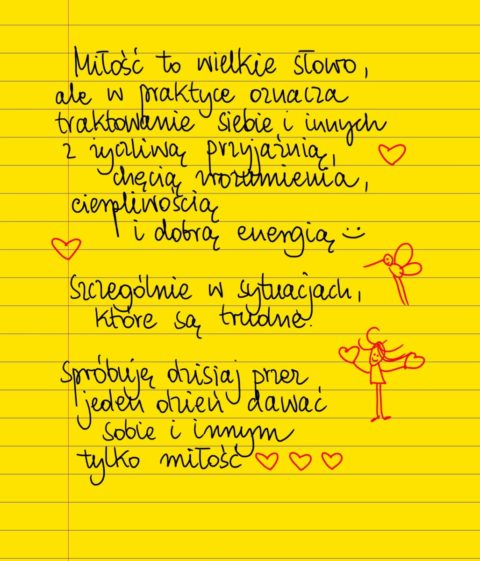 Miłość to wielkie słowo,
ale w praktyce oznacza
traktowanie siebie i innych
z życzliwą przyjaźnią,
chęcią zrozumienia,
cierpliwością
i dobrą energią :)
Szczególnie w sytuacjach,
które są trudne.
Spróbuję dzisiaj przez
jeden dzień dawać
sobie i innym
tylko miłość